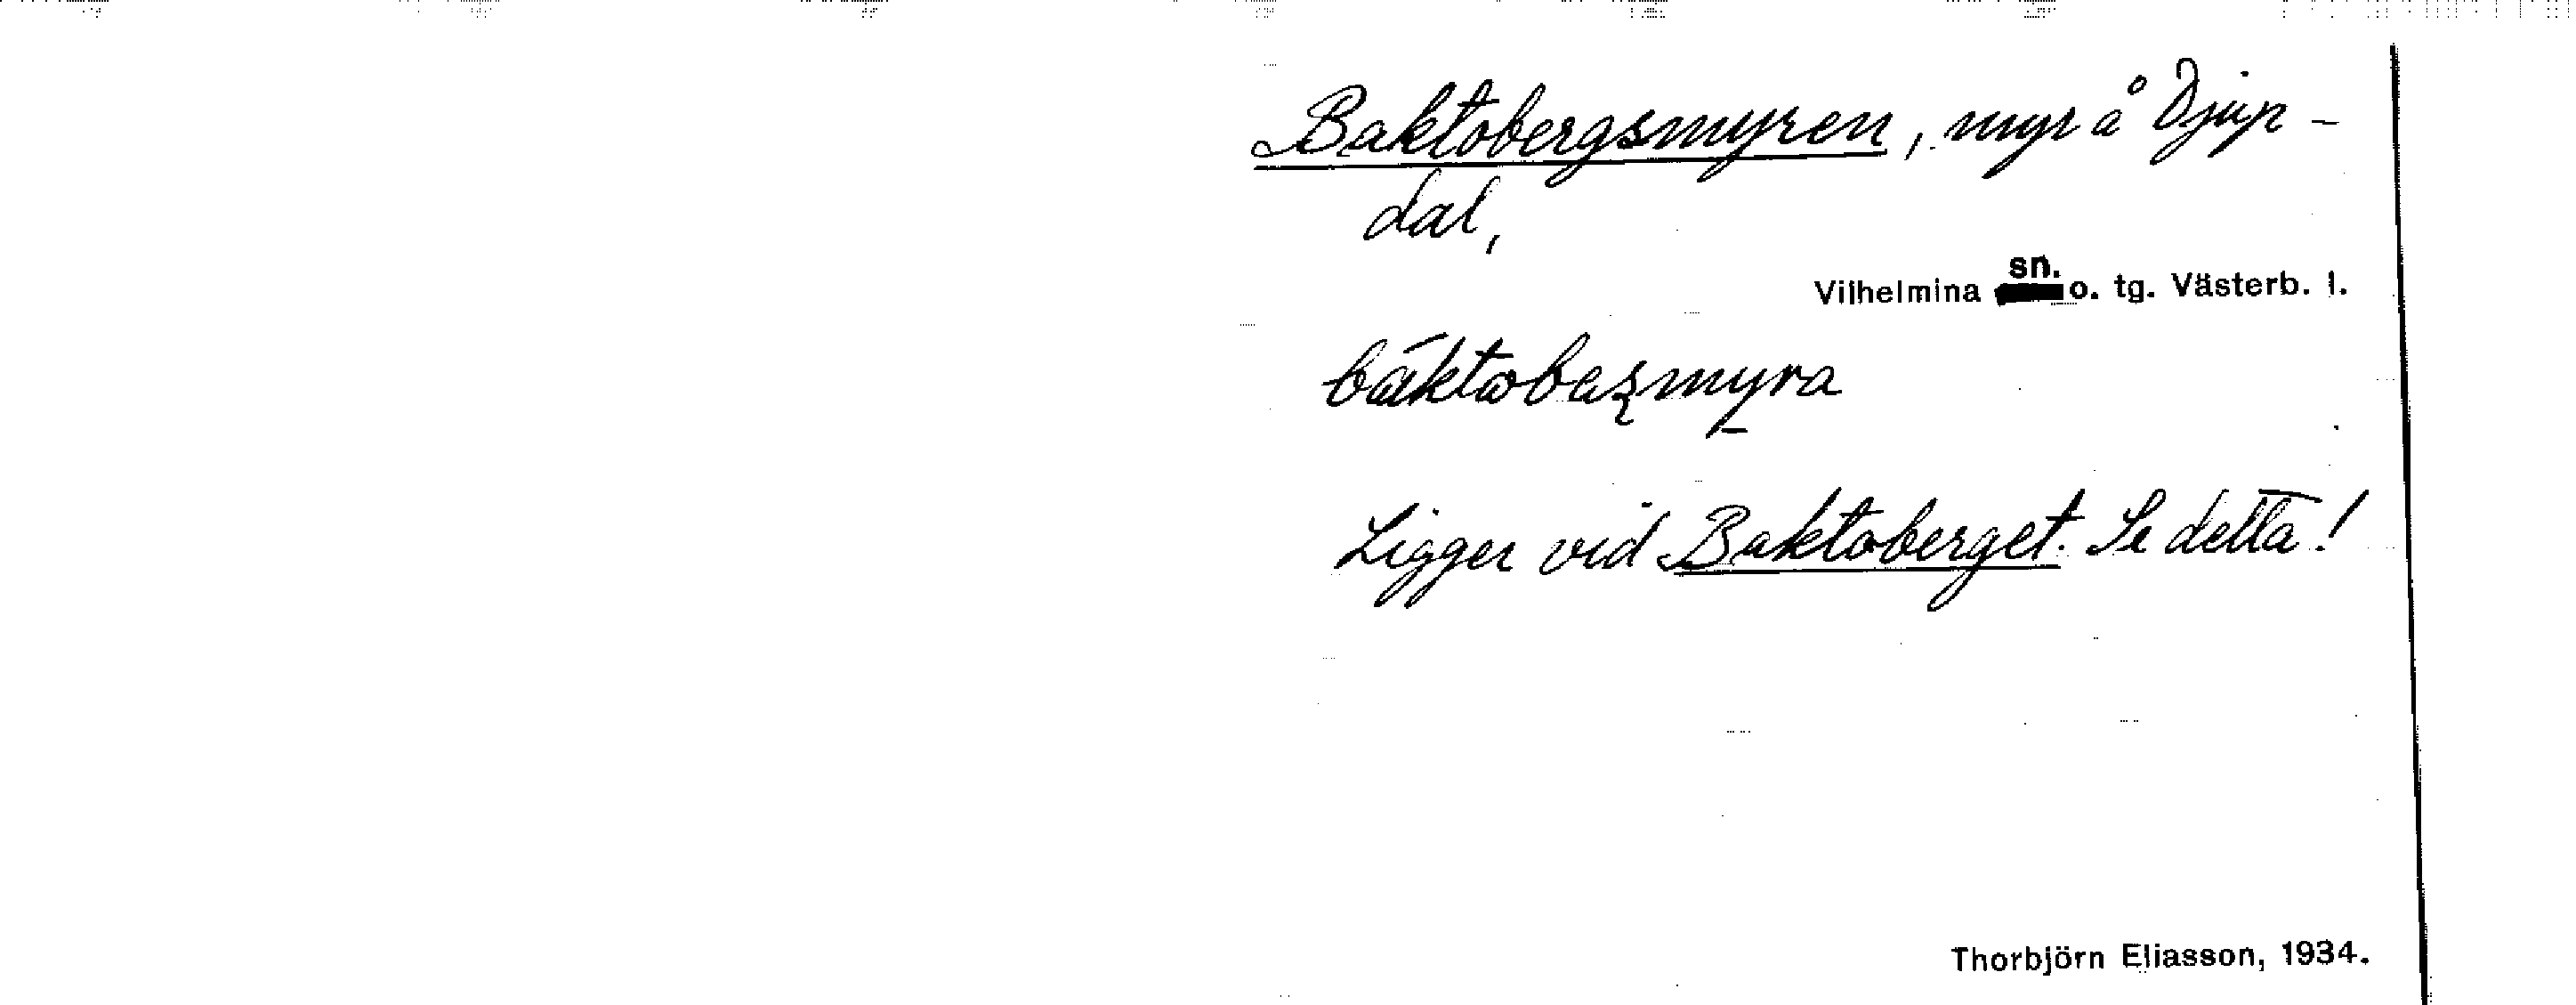 Baktobergsmyren, myr å Djup-
dal,
Vilhelmina sn. o. tg. Västerb. l.
Ligger vid Baktoberget. Se detta!
Thorbjörn Eliasson, 1934.